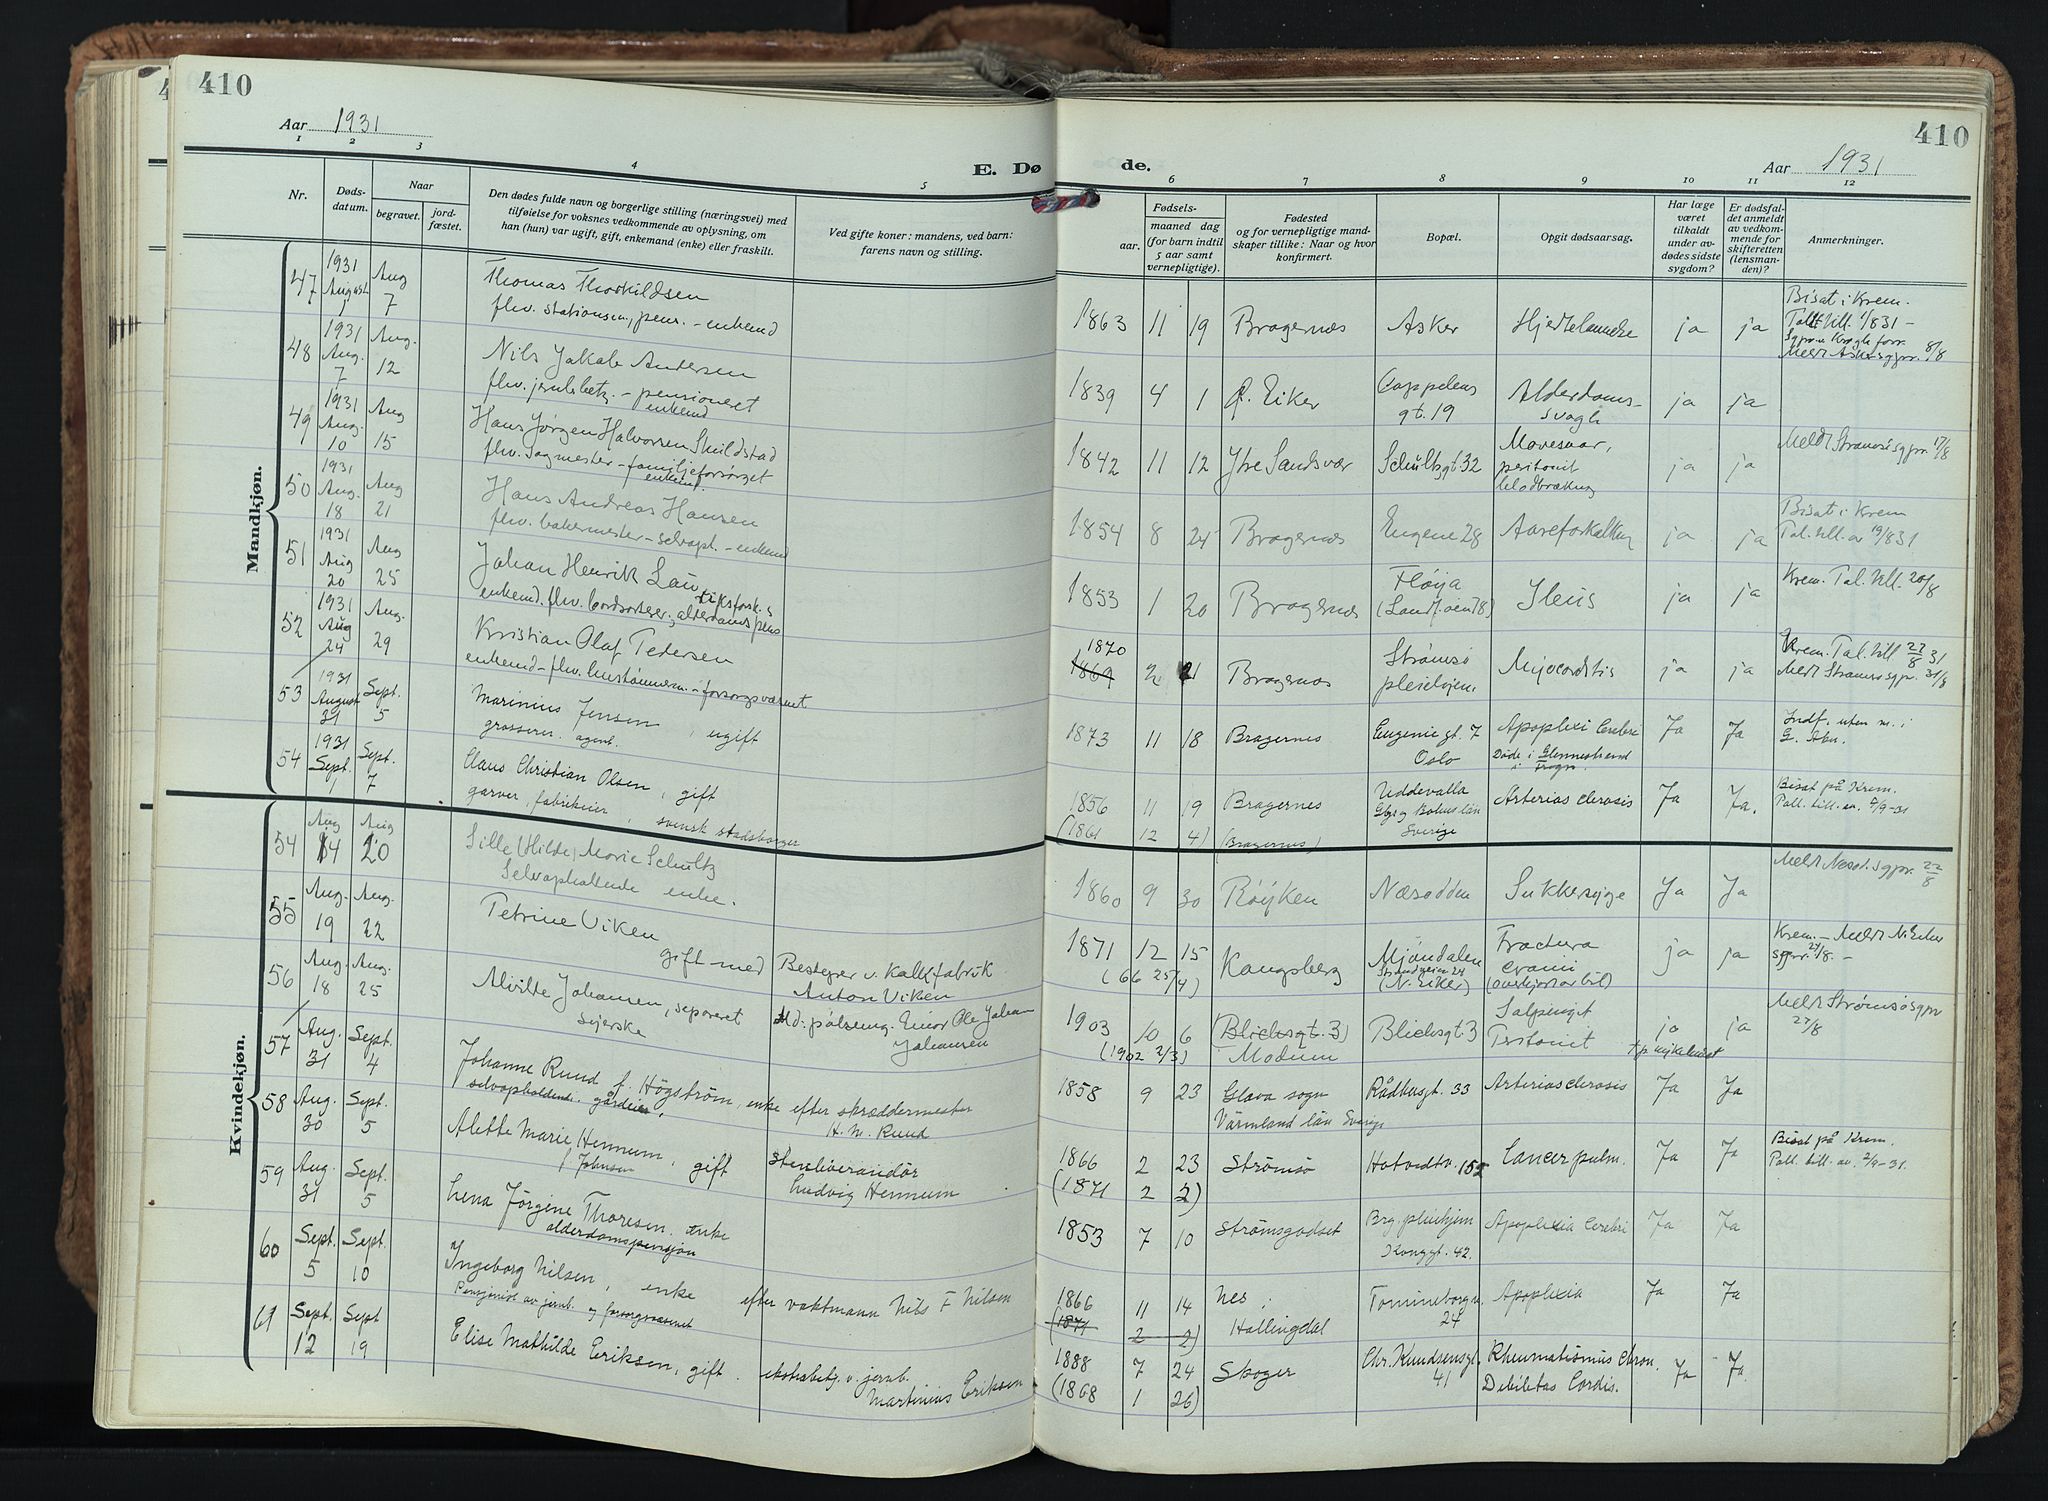 410
Aar 1931
E. Dø
1 2 3 4 5
Nr.
Døds-
datum.
Naar
begravet.
jord-
fæstet.
Den dødes fulde navn og borgerlige stilling (næringsvei) med
tilføielse for voksnes vedkommende av oplysning, om
han (hun) var ugift, gift, enkemand (enke) eller fraskilt.
Ved gifte koner: mandens, ved barn:
farens navn og stilling.
Mandkjøn.
47 1931 August 1 Aug 7 Thomas Thorkildsen
fhv. stationsm, pens. - enkemd
48 1931 Aug. 7 Aug. 12 Nils Jakob Andersen
fhv. jernb.betj. - pensioneret
enkemd
49 1931 Aug. 10 Aug 15 Hans Jørgen Halvorsen Skuldstad
fhv. sagmester - familjeforsørget
enkemd.
50 1931 Aug. 18 Aug 21 Hans Andreas Hansen
fhv. bakermester - selvoph. - enkemd
51 1931 Aug 20 Aug 25 Johan Henrik Lau
enkemd. fhv. bordsorterer, alderdoms pens
52 1931 Aug 24 Aug. 29 Kristian Olaf Pedersen
enkemd - fhv. hustømmerm. - forsorgsvæsnet
53 1931 August 31 Sept. 5 Marinius Jensen, ugift
grosserer. agent.
54 1931 Sept. 1 Sept. 7 Claus Christian Olsen, gift
garver, fabrikeier, svensk stadsborger
Kvindekjøn.
54 Aug 14 Aug 20 Sille (Hilde) Marie Schultz
Selvopholdende enke.
55 Aug. 19 Aug. 22 Petrine Viken
gift med Bestyrer v. kalkfabrik
Anton Viken
56 Aug. 18 Aug. 25 Alvilde Johansen, separeret
Syerske
pølsemg. Einar Ole Johan
Johansen
57 Aug. 31 Sept. 4 Johanne Ruud f. Högström, enke efter skræddermester
selvopholdende. gårdeier, H. M. Ruud
58 Aug. 30 Sept. 5 Alette Marie Hennum, gift stenleverandör
f Johnsen Ludvig Hennum
59 Aug. 31 Sept. 5 Lena Jørgine Thoresen. enke
alderdomspensjon
60 Sept. 5 Sept. 10 Ingeborg Nilsen, enke efter vaktmann Nils F Nilsen
Pensjonist av jernb. og forsorgsvæsenet
61 Sept. 12 Sept 19 Elise Mathilde Eriksen, gift. ekstrabetj. v. jernb.
Martinius Eriksen
410
de.
Aar 1931
6 7 8 9 10 11 12
Fødsels-
aar.
maaned dag
(for barn indtil
5 aar samt
vernepligtige).
Fødested
og for vernepligtige mand-
skaper tillike: Naar og hvor
konfirmert.
Bopæl.
Opgit dødsaarsag.
Har læge
været
tilkaldt
under av-
dødes sidste
sygdom?
Er dødsfal-
det anmeldt
av vedkom-
mende for
skifteretten
(lensman-
den)?
Anmerkninger.
1863 11 19 Bragernæs Asker Hjertelammelse ja ja Bisat i Krem.
8/8
1839 4 1 Ø. Eiker Cappelens
gt. 19 Alderdoms-
svagh ja ja
1842 11 12 Ytre Sandsvær Schultzgt 32 Mavesaar,
peritonit
blodbrækng ja ja Meldt Strømsø sgpr. 17/8
1854 8 24 Bragernæs Eugene 28 Aareforkalkng ja ja Bisat i Krem
Pal. till. av 19/8 31
1853 1 20 Bragernæs Fløya
Ileus ja ja Krem. Pal. till. 20/8
1870
1869 2 21 Bragernæs Strømsø
pleiehjem. Myocarditis ja ja Krem. Pal. till. 27/8 31
Meldt Strømsø sgpr. 31/8
1873 11 18 Bragernes Eugenie gt. 7
Oslo Apoplexi Cerebri
Døde i Glemmestrand
i Frogn. Ja Ja Indf. uten m. i
1856 11 19 Bragernes Uddevalla
Gbgs og Bohus län
Sverige Arterios clerosis Ja Ja. Bisat på Krem.
Pall. till. av. 5/9-31
(1861 12 4) (Bragernes)
1860 9 30 Røyken Næsodden Sukkersyge Ja Ja Meldt Nesod. sgpr. 22/8
1871 12 15 Kongsberg Mjøndalen
Strandveien 24
(N. Eiker) Fractura
cranii
(overkjørt av bil) ja ja Krem. - Meldt N. Eiker
sgpr. 27/8. -
(66 25/4)
1903 10 6 (Blichsgt. 3)
Modum Blichsgt 3 Salpingit
Peritonit jo ja Meldt Strømsø sgpr
27/8
(1902 2/3) på sykehuset
1858 9 23 Glava sogn
Värmland län Sverige Rådhusgt. 33 Arteriosclerosis Ja Ja
1866 2 23 Strømsø Hotvedtv. 155 Cancer pulm. Ja Ja Bisat på Krem.
Pall. till. av. 2/9-31.
(1871 2 2)
1853 7 10 Strømsgodset Brg. pleiehjem
Konggt. 42. Apoplexia Cerebri Ja Ja
1866 11 14 Nes i
Hallingdal
24 Apoplexia Ja Ja
(1871 2 2)
1888 7 24 Skoger Chr. Knudsensgt.
41 Rheumatismus chron.
Debilitas Cordis. Ja Ja
(1868 1 26)